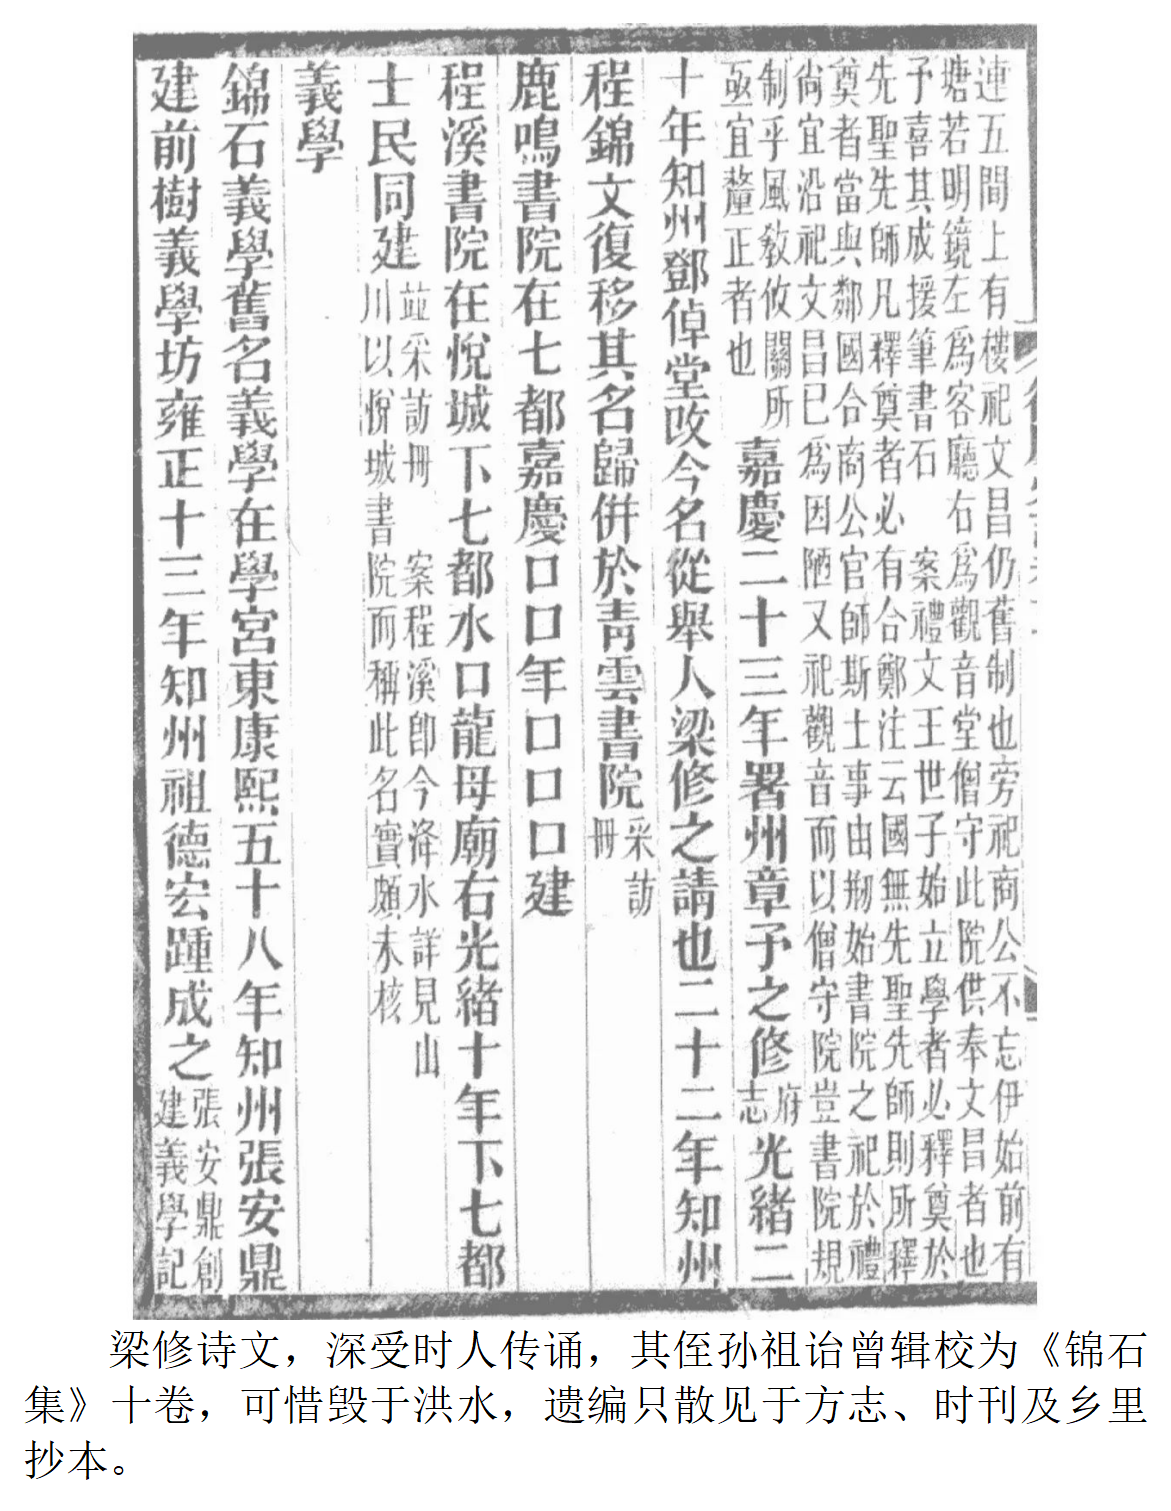 連五間上有樓祀文昌仍舊制也旁祀商公不忘伊始前有
塘若明鏡左爲客廳右爲觀音堂僧守此院供奉文昌者也
予喜其成援筆書石　案禮文王世子始立學者必釋奠於
先聖先師凡釋奠者必有合鄭注云國無先聖先師則所釋
奠者當與鄰國合商公官師斯士事由剏始書院之祀於禮
尙宜沿祀文昌已爲因陋又祀觀音而以僧守院豈書院規
制乎風敎攸關所
亟宜釐正者也
嘉慶二十三年署州章予之修府志光緖二
十年知州鄧倬堂改今名從舉人梁修之請也二十二年知州
程錦文復移其名歸併於靑雲書院采訪冊
鹿鳴書院在七都嘉慶口口年口口口建
程溪書院在悅城下七都水口龍母廟右光緖十年下七都
士民同建
並采訪冊　案程溪卽今洚水詳見山
川以悅城書院而稱此名實頗未核
義學
錦石義學舊名義學在學宮東康熙五十八年知州張安鼎
建前樹義學坊雍正十三年知州祖德宏踵成之
張安鼎創
建義學記
梁修诗文，深受时人传诵，其侄孙祖诒曾辑校为《锦石
集》十卷，可惜毁于洪水，遗编只散见于方志、时刊及乡里
抄本。